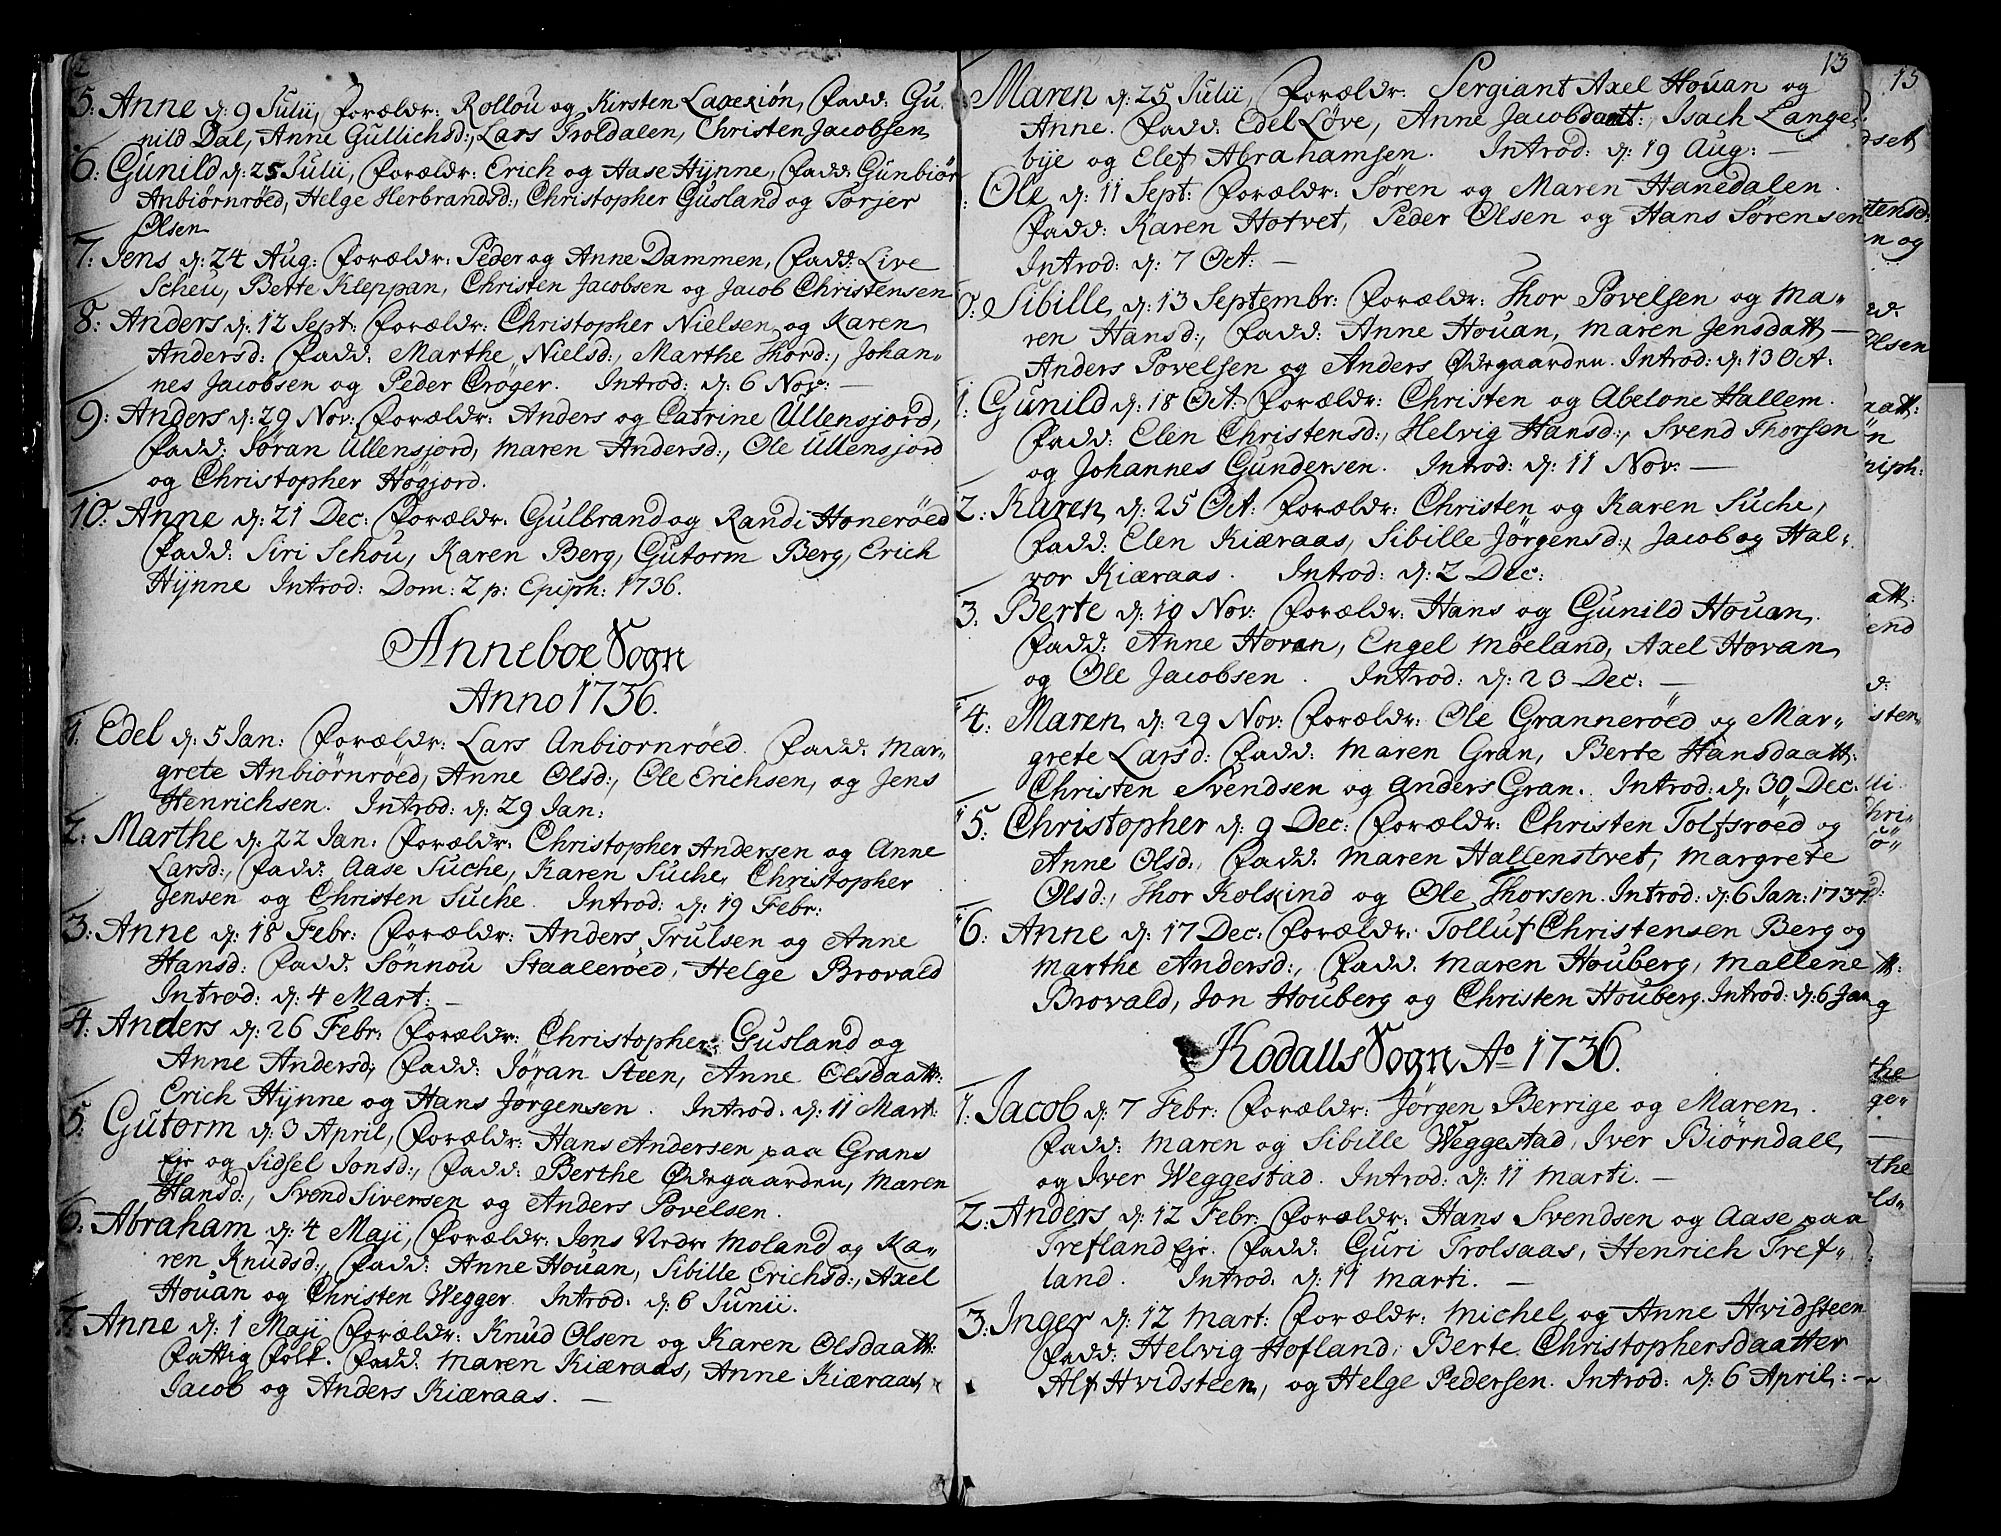 12
5: Anne d: 9 Julii, Forældr: Rollou og Kirsten Laxesiön, Fadd: Gu-
nild Dal, Anne Gullichsd:, Lars Troldalen, Christen Jacobsen
6: Gunild d: 25 Julii, Forældr: Erich og Aase Hÿnne, Fadd: Gunbiör
Anbiørnrøed, Helge Herbrandsd:, Christopher Gusland og Torjer
Olsen
7: Jens d: 24 Aug: Forældr: Peder og Anne Dammen, Fadd: Live
Scheu, Berte Kleppan, Christen Jacobsen og Jacob Christensen
8: Anders d: 12 Sept: Forældr: Christopher Nielsen og Karen
Andersd: Fadd: Marthe Nielsd:, Marthe Thord:, Johan-
nes Jacobsen og Peder Crøger. Introd: d: 6 Nov: —
9: Anders d: 29 Nov: Forældr: Anders og Catrine Ullensjord,
Fadd: Jøran Ullensjord, Maren Andersd:, Ole Ullensjord
og Christopher Høgjord.
10: Anne d: 21 Dec: Forældr: Gulbrand og Randi Honerøed
Fadd: Siri Schou, Karen Berg, Gutorm Berg, Erich
Hÿnne Introd: Dom: 2 p: Epiph: 1736.
Anneboe Sogn
Anno 1736.
1. Edel d: 5 Jan: Forældr: Lars Anbiornrøed. Fadd: Mar-
grete Anbiørnrøed, Anne Olsd:, Ole Erichsen, og Jens
Henrichsen. Introd: d: 29 Jan:
2: Marthe d: 22 Jan: Forældr: Christopher Andersen og Anne
Larsd:, Fadd: Aase Suche, Karen Suche, Christopher
Jensen og Christen Suche. Introd: d: 19 Febr:
3: Anne d: 18 Febr: Forældr: Anders Trulsen og Anne
Hansd: Fadd: Sønnou Staalerøed, Helge Brovald
Introd: d: 4 Mart: —
4: Anders d: 26 Febr: Forældr: Christopher Gusland og
Anne Andersd; Fadd: Jøran Steen, Anne Olsdaatt:
Erich Hÿnne og Hans Jørgensen. Introd: d: 11 Mart:
5: Gutorm d: 3 April, Forældr: Hans Andersen paa Grans
Eje og Sidsel Jonsd:, Fadd: Berthe Ødegaarden, Maren
Hansd:, Svend Sivensen og Anders Povelsen.
6: Abraham d: 4 Maji, Forældr: Jens Nedr Moland og Ka-
ren Knudsd:, Fadd: Anne Houan, Sibille Erichsd:, Axel
Houan og Christen Wegger. Introd: d: 6 Junii.
7: Anne d: 1 Maji Forældr: Knud Olsen og Karen Olsdaatt:
Fattig Folk. Fadd: Maren Kiæraas, Anne Kiæraas,
Jacob og Anders Kiæraas. —
13
Maren d: 25 Julii, Forældr: Sergiant Axel Houan og
Anne. Fadd: Edel Løve, Anne Jacobdaatt:, Isach Lange-
bÿe og Elef Abrahamsen. Introd: d: 19 Aug: —
Ole d: 11 Sept: Forældr: Søren og Maren Hanedalen.
Fadd: Karen Hotvet, Peder Olsen og Hans Sørensen
Introd: d: 7 Oct: —
0: Sibille, d: 13 Septembr: Forældr: Thor Povelsen og Ma-
ren Hansd:, Fadd: Anne Houan, Maren Jensdatt —
Anders Povelsen og Anders Ødegaarden. Introd: d: 13 Oct:
1: Gunild d: 18 Oct: Forældr: Christen og Abelone Hallem.
Fadd: Elen Christensd:, Helvig Hansd:, Svend Thorsen
og Johannes Gundersen. Introd: d: 11 Nov: —
2: Karen d: 25 Oct: Forældr: Christen og Karen Suche,
Fadd: Elen Kiæraas, Sibille Jørgensd:, Jacob og Hal-
vor Kiæraas. Introd: d: 2 Dec:
3. Berte d: 19 Nov: Forældr: Hans og Gunild Houan.
Fadd: Anne Hovan, Engel Moeland, Axel Hovan
og Ole Jacobsen. Introd: d: 23 Dec: —
4: Maren d: 29 Nov: Forældr: Ole Grannerøed og Mar-
grete Larsd: Fadd: Maren Gran, Berte Hansdaatt:
Christen Svendsen og Anders Gran. Introd: d: 30 Dec:
5: Christopher d: 9 Dec: Forældr: Christen Tolfsröed og
Anne Olsd:, Fadd: Maren Hallenstvet, Margrete
Olsd:, Thor Kolskind og Ole Thorsen. Introd: d: 6 Jan: 1737
6: Anne d: 17 Dec: Forældr: Tolluf Christensen Berg og
Marthe Andersd:, Fadd: Maren Houberg, Mallene
Brovald, Jon Houberg og Christen Houberg. Introd: d: 6 Jan
Kodalls Sogn Ao 1736.
1. Jacob d: 7 Febr: Forældr: Jørgen Berrige og Maren.
Fadd: Maren og Sibille Weggestad, Iver Biørndall
og Iver Weggestad. Introd: d: 11 Marti. —
2: Anders d: 12 Febr: Forældr: Hans Svendsen og Aase paa
Trefland Eje. Fadd: Guri Trolsaas, Henrich Tref-
land. Introd: d: 11 Marti. —
3: Inger d: 12 Mart: Forældr: Michel og Anne Hvidsteen
Fadd: Helvig Hofland, Berte Christophersdaatter
Alf Hvidsteen, og Helge Pedersen. Introd: d: 6 April: —
15